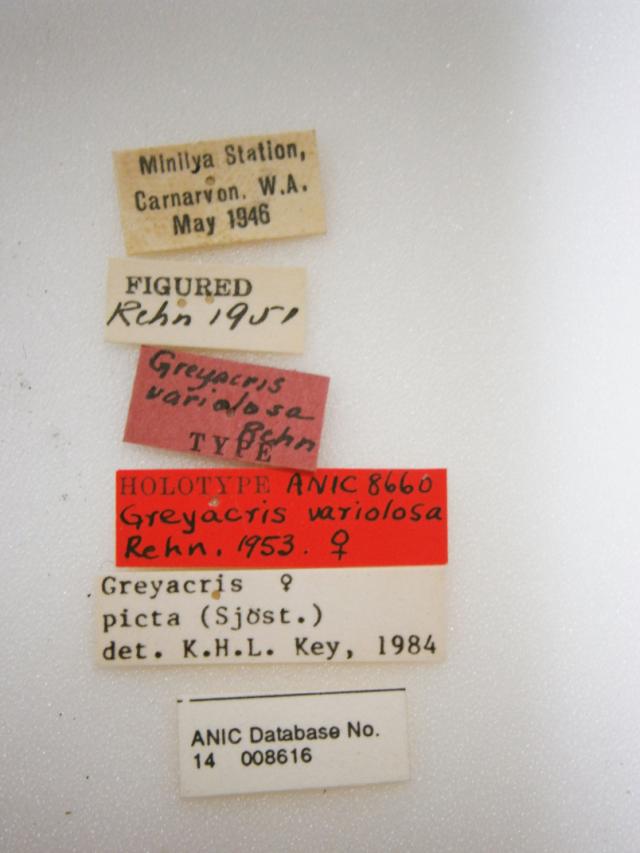 Minilya Station,
Carnarvon. W.A.
May 1946
FIGURED
Rehn 1951
Greyacris
variolosa
Rehn
TYPE
HOLOTYPE ANIC 8660
Greyacris variolosa
Rehn. 1953. ♀
Greyacris ♀
picta (Sjöst.)
det. K.H.L. Key, 1984
ANIC Database No.
14 008616